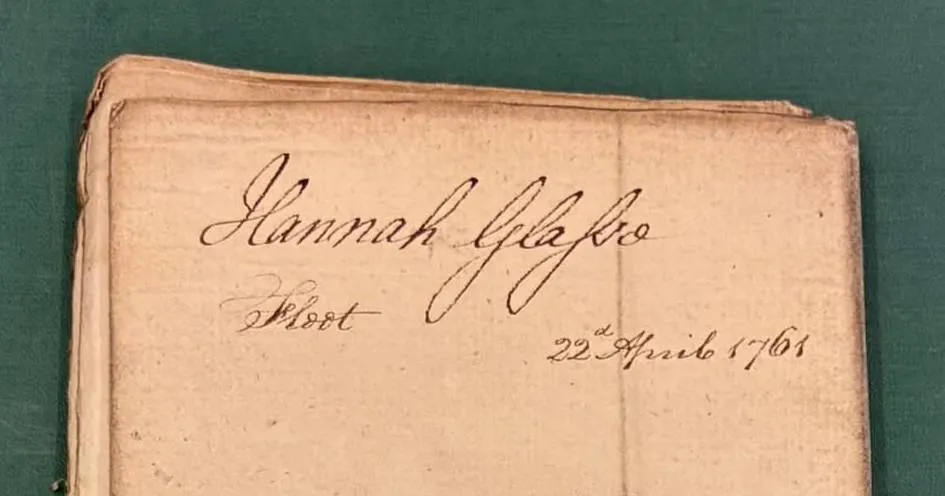 Hannah Glaſse
Fleet
22ᵈ April 1761